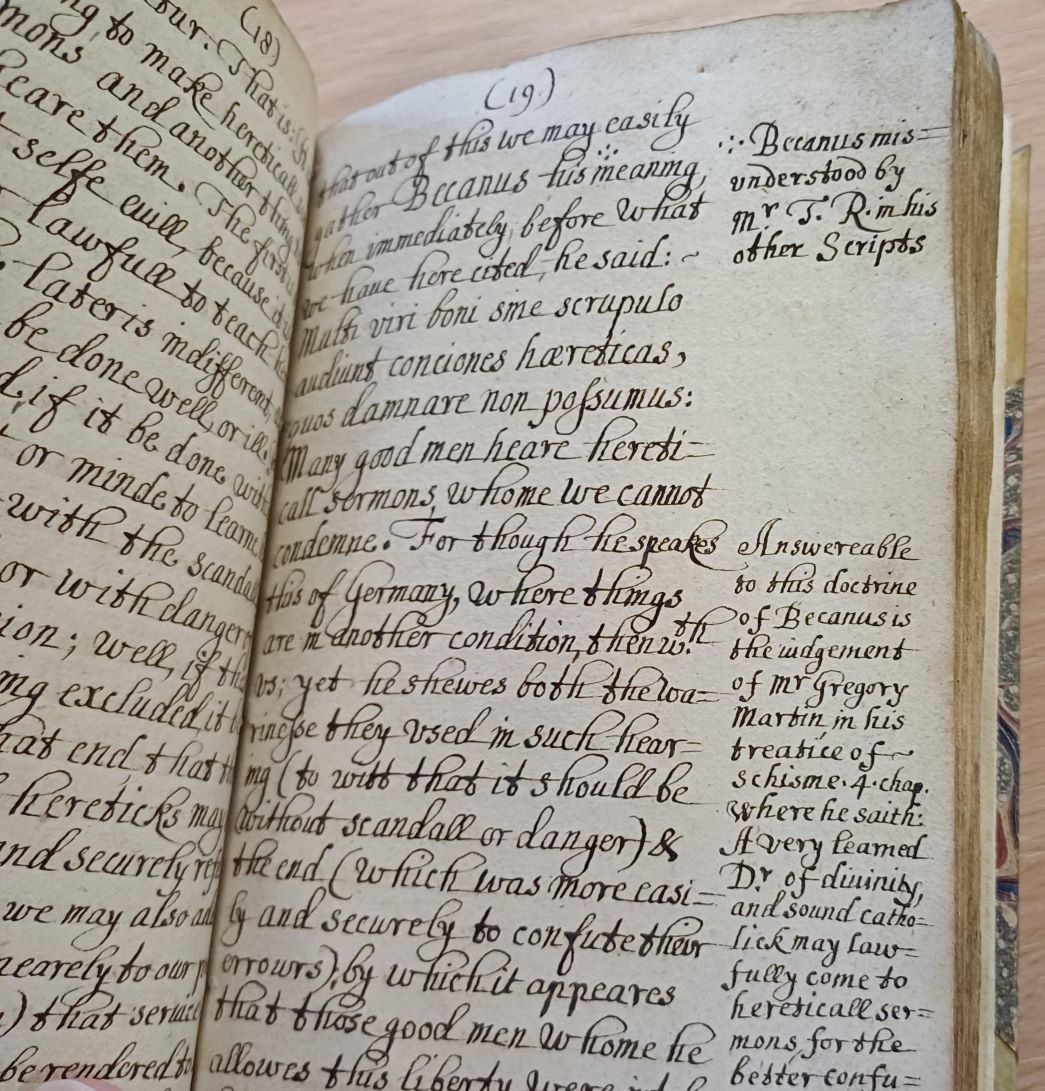 (18)
our. That is:
ng, to make hereticall
mons and another thing
heare them. The first
selfe euill, because it
lawfull to teach
later is indifferent,
be done well, or ill.
if it be done with
or minde to learne
with the scandall
or with danger
ion; well, if the
ng excluded, it
hat end that
hereticks may
nd securely
we may also
nearely to our
) that seruice
be rendered to
(19.)
that out of this we may easily
gather Becanus his meaning,
when immediately, before what
we haue here cited, he said: ~
Multi viri boni sine scrupulo
audiunt conciones hæreticas,
quos damnare non possumus:
Many good men heare hereti=
call sermons, whome we cannot
condemne. For though he speakes
this of Germany, where things
are in another condition, then wth
vs; yet he shewes both the wa=
rinesse they vsed in such hear=
ing (to witt that it should be
without scandall or danger) &
the end (which was more easi=
ly and securely to confute their
errours), by which it appeares
that those good men whome he
allowes this liberty were
∴ Becanus mis=
vnderstood by
Mr T. R. in his
other Scripts
Answereable
to this doctrine
of Becanus is
the iudgement
of Mr Gregory
Martin in his
treatice of ~
schisme. 4. chap.
where he saith:
A very learned
Dr. of diuinity,
and sound catho=
lick may law=
fully come to
hereticall ser=
mons for the
better confu=